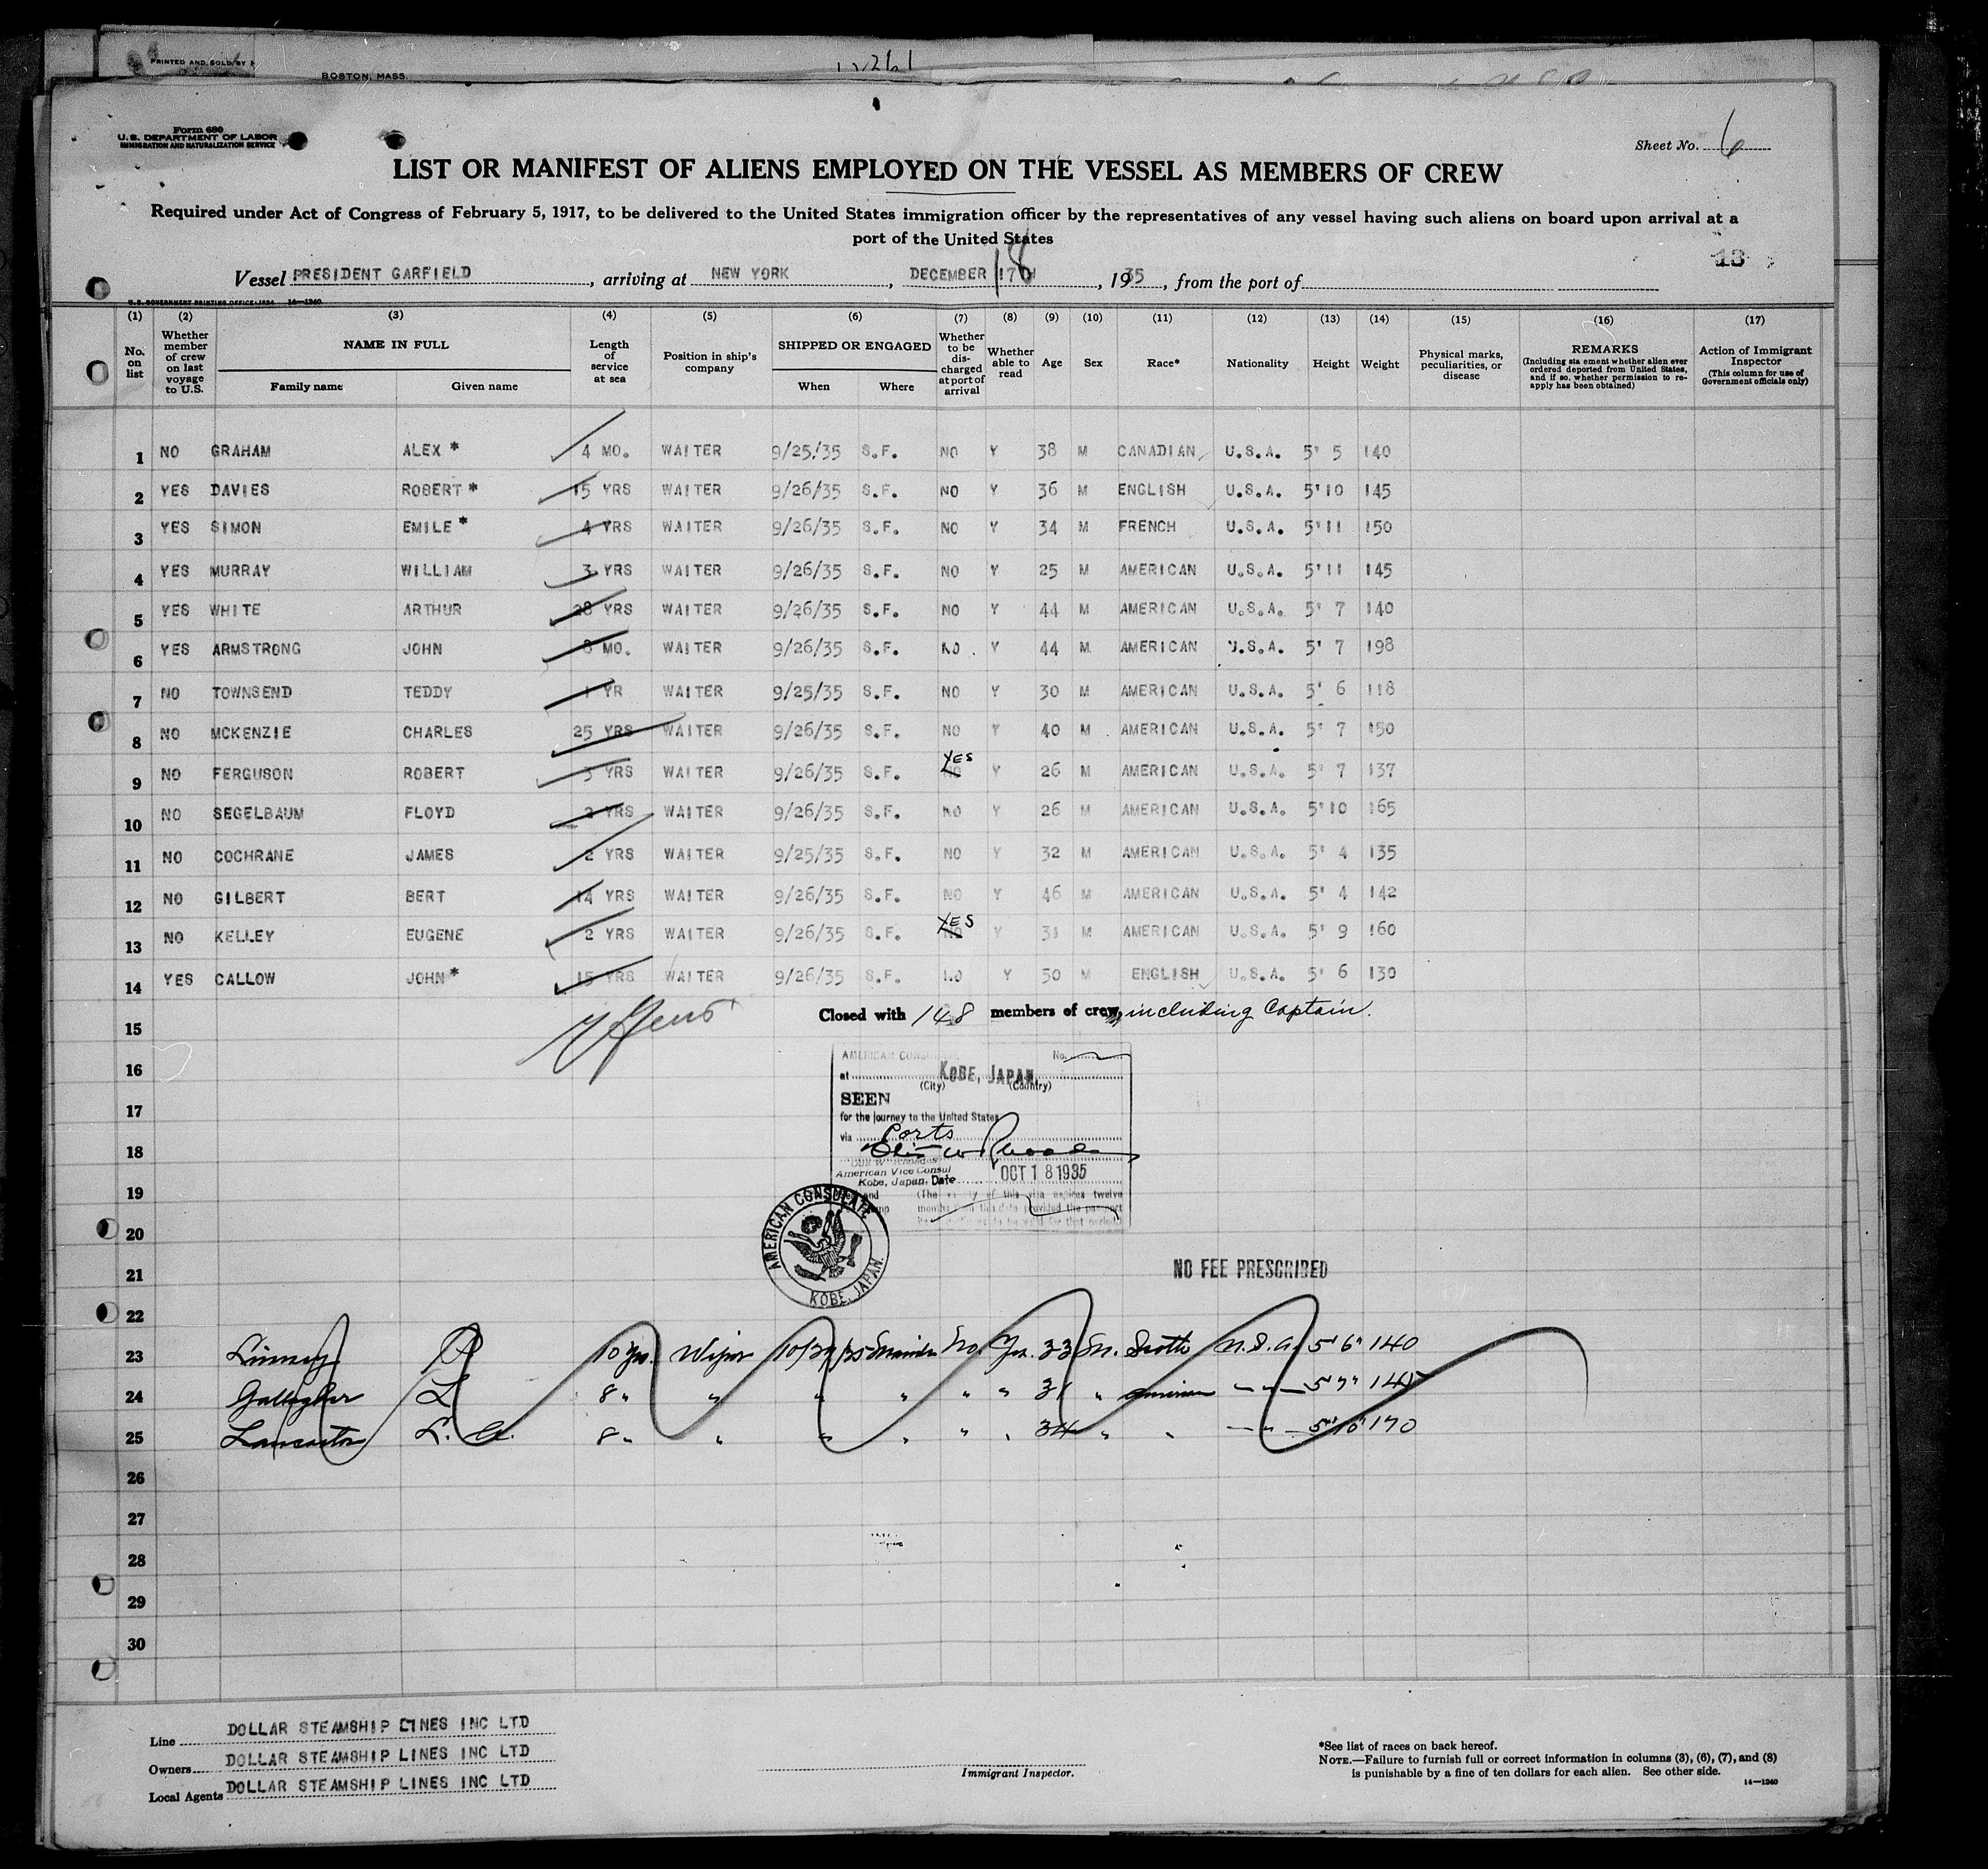 PRINTED AND SOLD BY
BOSTON, MASS.
Form 680
U. S. DEPARTMENT OF LABOR
IMMIGRATION AND NATURALIZATION SERVICE
Sheet No. 6
LIST OR MANIFEST OF ALIENS EMPLOYED ON THE VESSEL AS MEMBERS OF CREW
Required under Act of Congress of February 5, 1917, to be delivered to the United States immigration officer by the representatives of any vessel having such aliens on board upon arrival at a
port of the United States
13
Vessel PRESIDENT GARFIELD, arriving at NEW YORK, DECEMBER 18, 1935, from the port of
U. S. GOVERNMENT PRINTING OFFICE: 1934 14—1240
(1) (2) (3) (4) (5) (6) (7) (8) (9) (10) (11) (12) (13) (14) (15) (16) (17)
No. on list
Whether member of crew on last voyage to U.S.
NAME IN FULL
Family name Given name
Length of service at sea
Position in ship's company
SHIPPED OR ENGAGED
When Where
Whether to be discharged at port of arrival
Whether able to read
Age
Sex
Race*
Nationality
Height
Weight
Physical marks, peculiarities, or disease
REMARKS
(Including statement whether alien ever ordered deported from United States, and if so, whether permission to reapply has been obtained)
Action of Immigrant Inspector
(This column for use of Government officials only)
1 NO GRAHAM ALEX * 4 MO. WAITER 9/25/35 S.F. NO Y 38 M CANADIAN U.S.A. 5' 5 140
2 YES DAVIES ROBERT * 15 YRS WAITER 9/26/35 S.F. NO Y 36 M ENGLISH U.S.A. 5'10 145
3 YES SIMON EMILE * 4 YRS WAITER 9/26/35 S.F. NO Y 34 M FRENCH U.S.A. 5'11 150
4 YES MURRAY WILLIAM 3 YRS WAITER 9/26/35 S.F. NO Y 25 M AMERICAN U.S.A. 5'11 145
5 YES WHITE ARTHUR 28 YRS WAITER 9/26/35 S.F. NO Y 44 M AMERICAN U.S.A. 5' 7 140
6 YES ARMSTRONG JOHN 8 MO. WAITER 9/26/35 S.F. NO Y 44 M AMERICAN U.S.A. 5' 7 198
7 NO TOWNSEND TEDDY 1 YR WAITER 9/25/35 S.F. NO Y 30 M AMERICAN U.S.A. 5' 6 118
8 NO MCKENZIE CHARLES 25 YRS WAITER 9/26/35 S.F. NO Y 40 M AMERICAN U.S.A. 5' 7 150
9 NO FERGUSON ROBERT 3 YRS WAITER 9/26/35 S.F. YES Y 26 M AMERICAN U.S.A. 5' 7 137
10 NO SEGELBAUM FLOYD 2 YRS WAITER 9/26/35 S.F. NO Y 26 M AMERICAN U.S.A. 5'10 165
11 NO COCHRANE JAMES 2 YRS WAITER 9/25/35 S.F. NO Y 32 M AMERICAN U.S.A. 5' 4 135
12 NO GILBERT BERT 14 YRS WAITER 9/26/35 S.F. NO Y 46 M AMERICAN U.S.A. 5' 4 142
13 NO KELLEY EUGENE 2 YRS WAITER 9/26/35 S.F. YES Y 31 M AMERICAN U.S.A. 5' 9 160
14 YES CALLOW JOHN * 15 YRS WAITER 9/26/35 S.F. NO Y 50 M ENGLISH U.S.A. 5' 6 130
15 Closed with 148 members of crew, including Captain.
AMERICAN CONSULATE No.
16 at KOBE, JAPAN
(City) (Country)
SEEN
17 for the journey to the United States
via Ports
18
American Vice Consul
Kobe, Japan. Date OCT 18 1935
19
AMERICAN CONSULATE
KOBE, JAPAN.
20
21 NO FEE PRESCRIBED
22
23 Linney P 10 yrs. Wiper Manila No. Yes. 33 M. Scotch U.S.A. 5' 6" 140
24 Gallagher L 8 " " " " " " 31 " American — " — 5' 7" 145
25 Lancaster L. A. 8 " " " " " " 34 " " — " — 5'10" 170
26
27
28
29
30
Line DOLLAR STEAMSHIP LINES INC LTD
Owners DOLLAR STEAMSHIP LINES INC LTD
Local Agents DOLLAR STEAMSHIP LINES INC LTD
Immigrant Inspector.
*See list of races on back hereof.
NOTE.—Failure to furnish full or correct information in columns (3), (6), (7), and (8)
is punishable by a fine of ten dollars for each alien. See other side.
14—1240